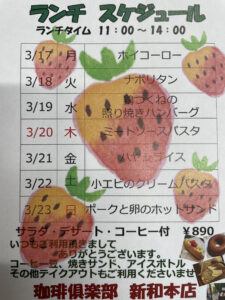 ランチ スケジュール
ランチタイム 11：00～14：00
3/17 月 ホイコーロー
3/18 火 ナポリタン
3/19 水 つくねの
照り焼きハンバーグ
3/20 木 ミートソースパスタ
3/21 金 ライス
3/22 土 小エビのクリームパスタ
3/23 日 ポークと卵のホットサンド
サラダ・デザート・コーヒー付 ¥890
いつもご利用頂きまして
ありがとうございます。
コーヒー豆、焼きサンド、アイスボトル
その他テイクアウトもご利用くださいませ
珈琲倶楽部 新和本店